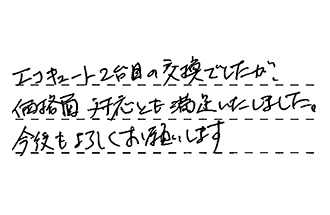 エコキュート2台目の交換でしたが、
価格面 対応とも満足いたしました。
今後もよろしくお願いします